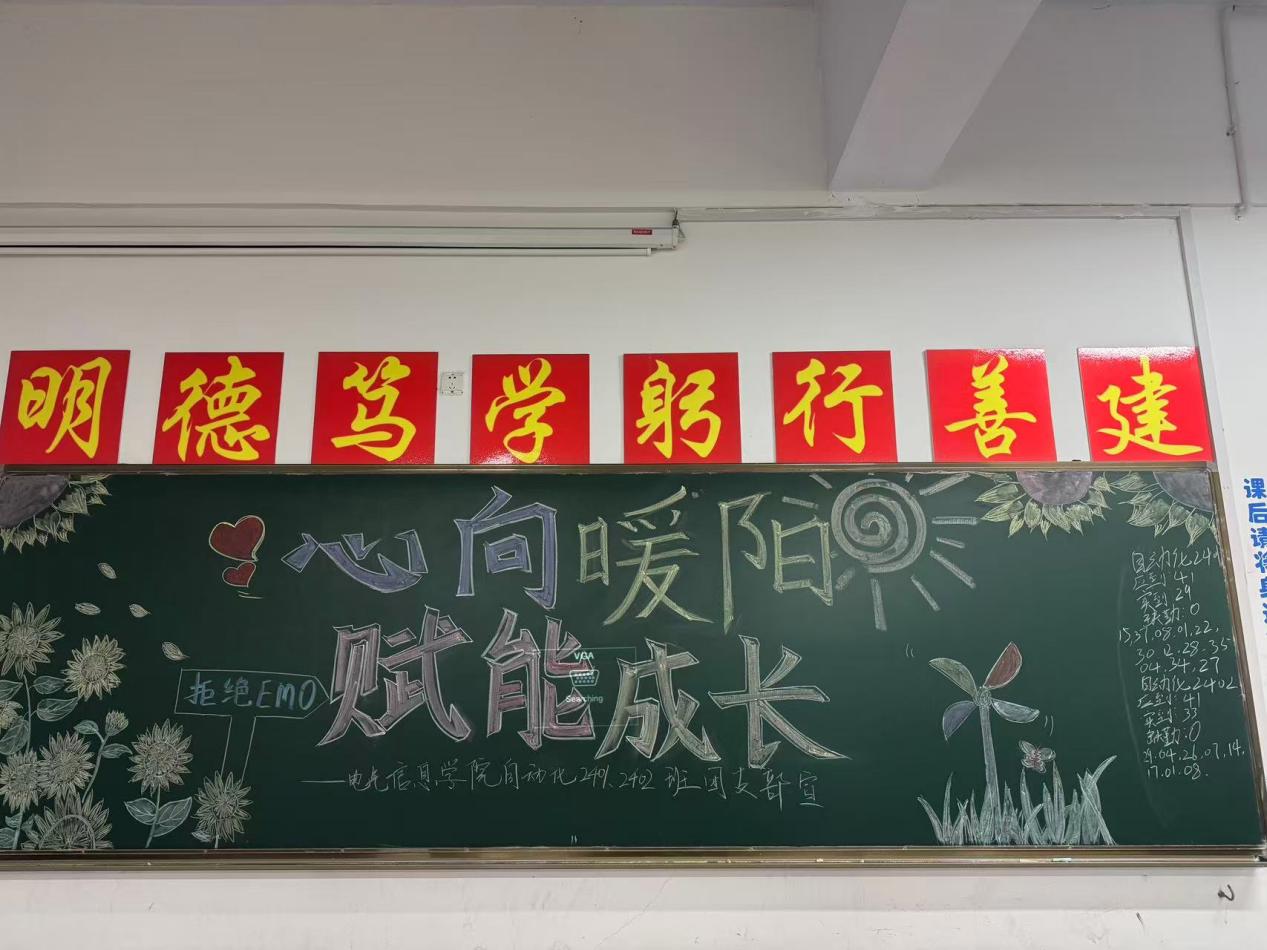 明德笃学躬行善建
心向暖阳
赋能成长
VGA
Searching
拒绝EMO
——电气信息学院自动化2401.2402班团支部宣
自动化2401
应到:41
实到:29
缺勤:0
15,37.08.01.22,
30.12.28.35
04.34.27
自动化2402
应到:41
实到:33
缺勤:0
29.04.26.07.14.
17.01.08.
课后请将桌